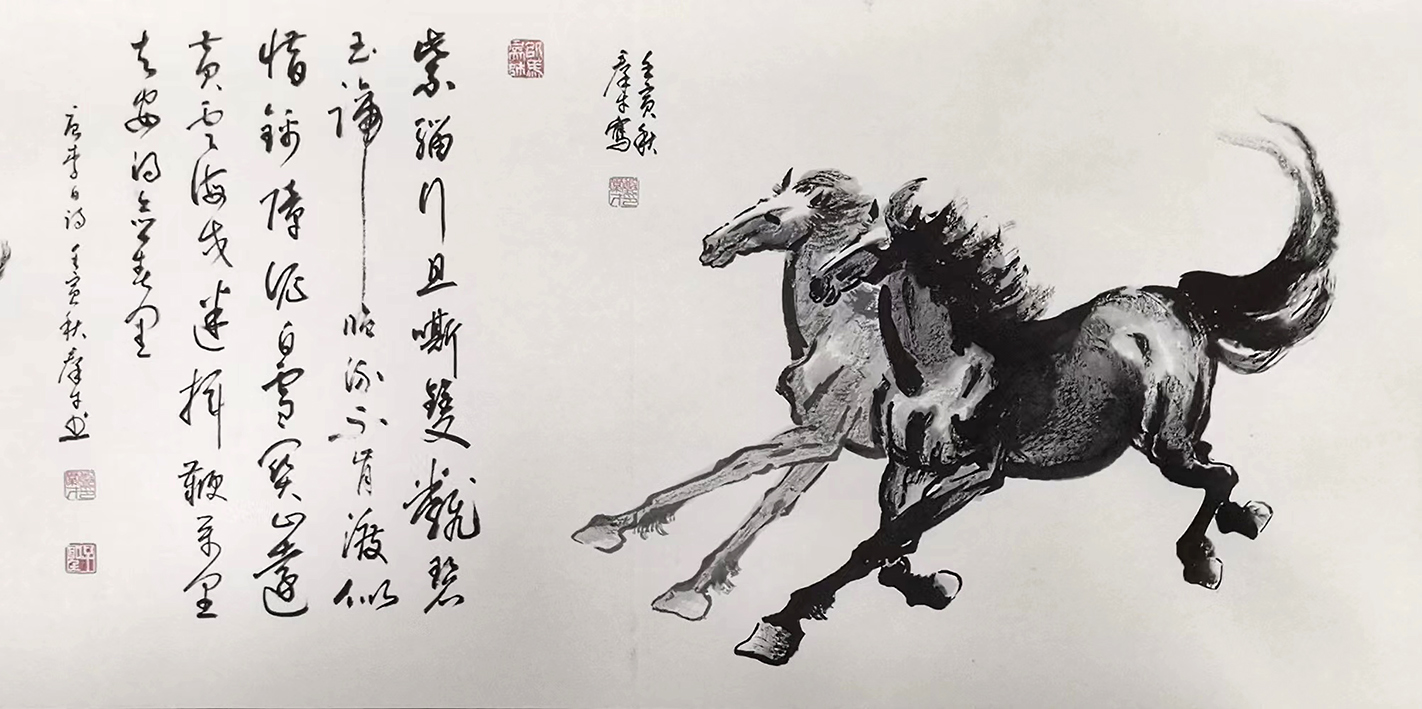 壬寅秋
群牛寫
紫騮行且嘶雙飜碧
玉蹄臨流不肯渡似
惜錦障泥白雪関山遠
黃雲海戍迷揮鞭萬里
去安得念春閨
唐李白詩壬寅秋群牛书